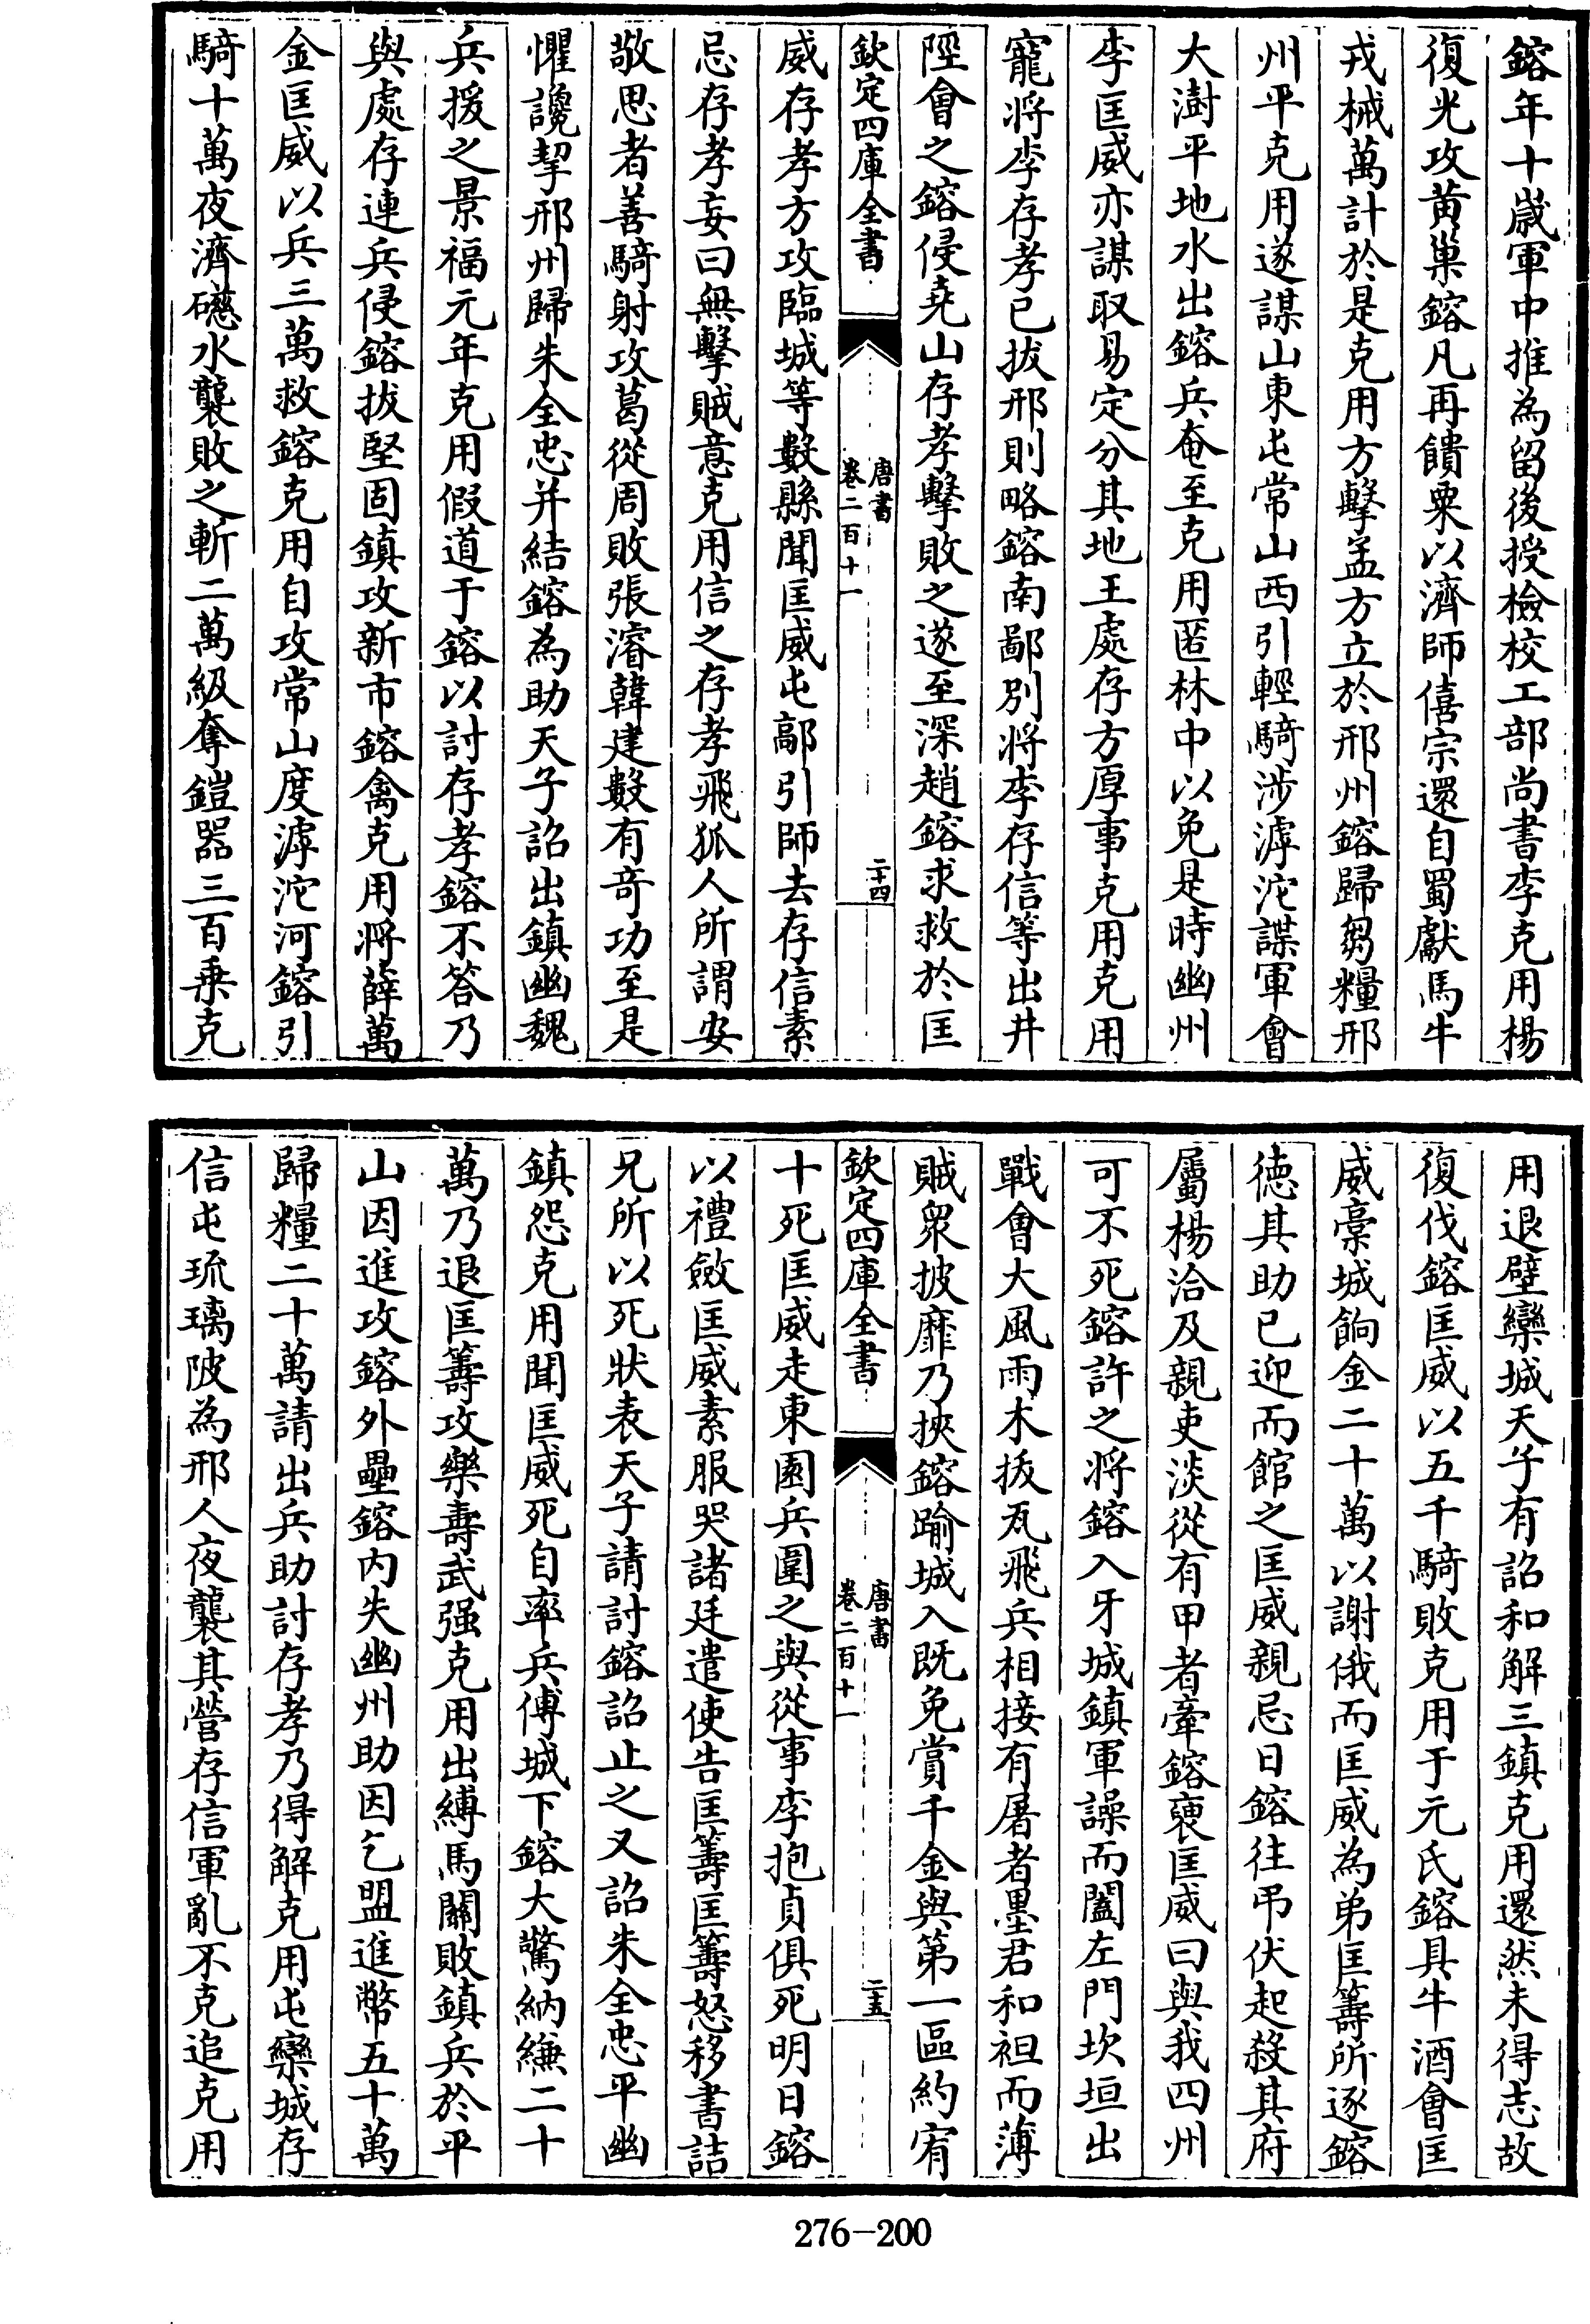 鎔年十歲軍中推為留後授檢校工部尚書李克用楊
復光攻黄巢鎔凡再饋粟以濟師僖宗還自蜀獻馬牛
戎械萬計於是克用方擊孟方立於邢州鎔歸芻糧邢
州平克用遂謀山東屯常山西引輕騎涉滹沱諜軍會
大澍平地水出鎔兵奄至克用匿林中以免是時幽州
李匡威亦謀取易定分其地王處存方厚事克用克用
寵将李存孝已拔邢則略鎔南鄙别将李存信等出井
陘會之鎔侵堯山存孝擊敗之遂至深趙鎔求救於匡
欽定四庫全書
唐書
卷二百十一
二十四
威存孝方攻臨城等數縣聞匡威屯鄗引師去存信素
忌存孝妄曰無擊賊意克用信之存孝飛狐人所謂安
敬思者善騎射攻葛從周敗張濬韓建數有奇功至是
懼讒挈邢州歸朱全忠并結鎔為助天子詔出鎮幽魏
兵援之景福元年克用假道于鎔以討存孝鎔不答乃
與處存連兵侵鎔拔堅固鎮攻新市鎔禽克用将薛萬
金匡威以兵三萬救鎔克用自攻常山度滹沱河鎔引
騎十萬夜濟礠水襲敗之斬二萬級奪鎧器三百乗克
用退壁欒城天子有詔和解三鎮克用還然未得志故
復伐鎔匡威以五千騎敗克用于元氏鎔具牛酒會匡
威藁城餉金二十萬以謝俄而匡威為弟匡籌所逐鎔
德其助已迎而館之匡威親忌日鎔往弔伏起殺其府
屬楊洽及親吏淡從有甲者牽鎔褏匡威曰與我四州
可不死鎔許之将鎔入牙城鎮軍譟而闔左門坎垣出
戰會大風雨木拔瓦飛兵相接有屠者墨君和袒而薄
賊衆披靡乃挾鎔踰城入既免賞千金與第一區約宥
欽定四庫全書
唐書
卷二百十一
二十五
十死匡威走東園兵圍之與從事李抱貞俱死明日鎔
以禮斂匡威素服哭諸廷遣使告匡籌匡籌怒移書詰
兄所以死狀表天子請討鎔詔止之又詔朱全忠平幽
鎮怨克用聞匡威死自率兵傅城下鎔大驚納縑二十
萬乃退匡籌攻樂壽武强克用出縛馬關敗鎮兵於平
山因進攻鎔外壘鎔内失幽州助因乞盟進幣五十萬
歸糧二十萬請出兵助討存孝乃得解克用屯欒城存
信屯琉璃陂為邢人夜襲其營存信軍亂不克追克用
276-200